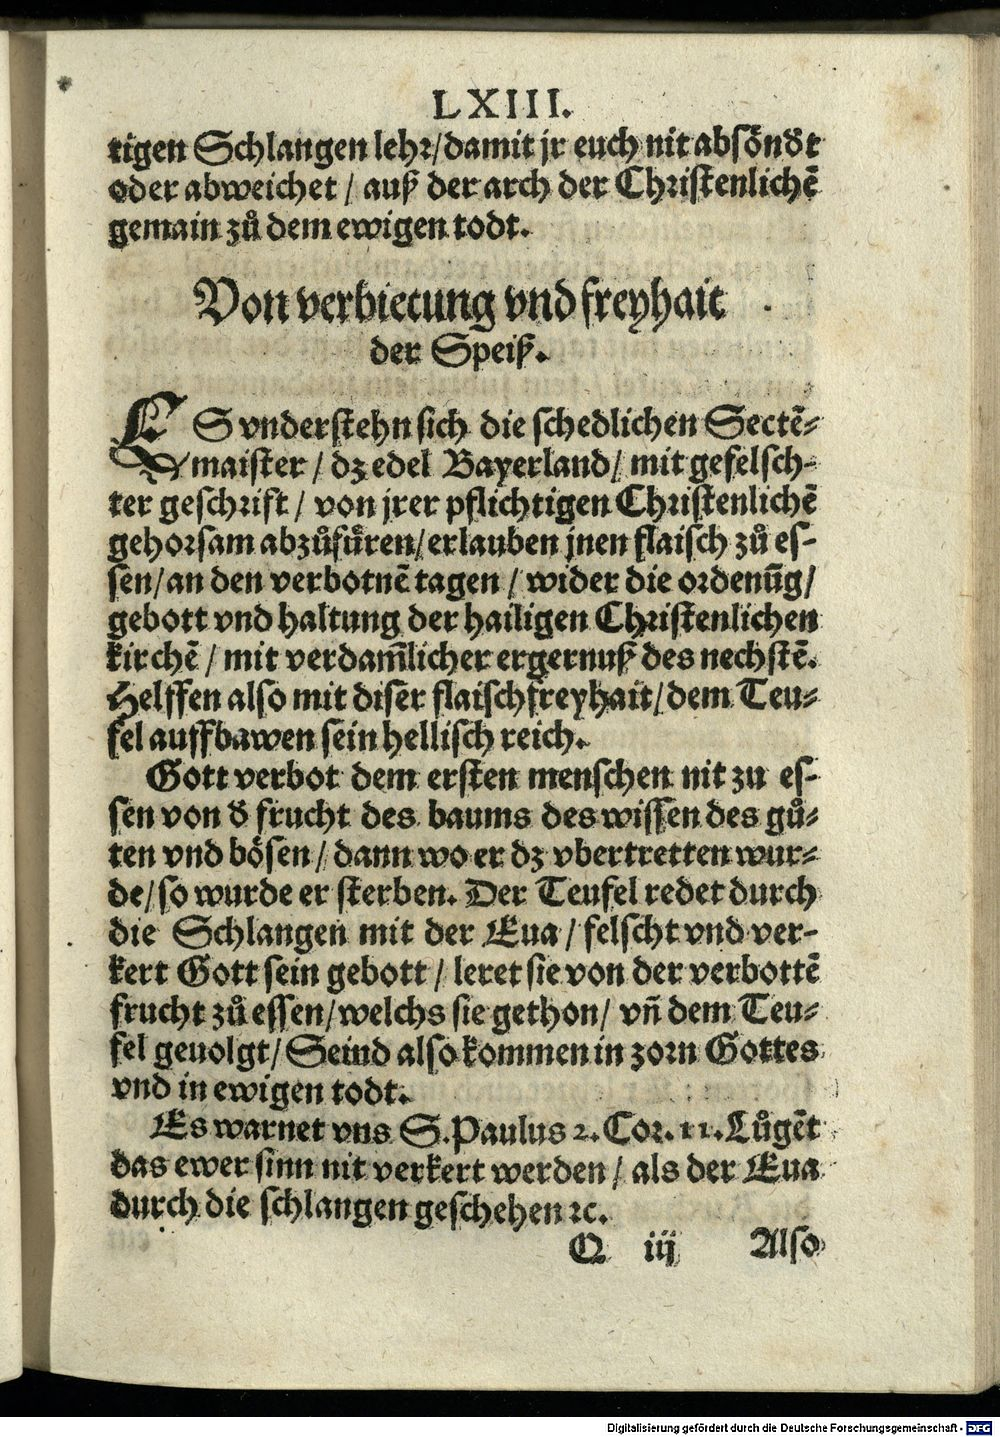 LXIII.
tigen Schlangen lehr/damit jr euch nit absoͤndt
oder abweichet / auß der arch der Christenlichē
gemain zů dem ewigen todt.
Von verbietung vnd freyhait
der Speiß.
ES vnderstehn sich die schedlichen Sectē-
maister / dz edel Bayerland/ mit gefelsch-
ter geschrift / von jrer pflichtigen Christenlichē
gehorsam abzůfuͤren/erlauben jnen flaisch zů es-
sen/an den verbotnē tagen / wider die ordenūg/
gebott vnd haltung der hailigen Christenlichen
kirchē / mit verdam̄licher ergernuß des nechstē.
Helffen also mit diser flaischfreyhait/dem Teu-
fel auffbawen sein hellisch reich.
Gott verbot dem ersten menschen nit zu es-
sen von d̕ frucht des baums des wissen des gů-
ten vnd bösen/ dann wo er dz vbertretten wur-
de/so wurde er sterben. Der Teufel redet durch
die Schlangen mit der Eua / felscht vnd ver-
kert Gott sein gebott / leret sie von der verbottē
frucht zů essen/welchs sie gethon/ vn̄ dem Teu-
fel geuolgt/Seind also kommen in zorn Gottes
vnd in ewigen todt.
Es warnet vns S.Paulus 2. Cor. 11. Lůgēt
das ewer sinn nit verkert werden / als der Eua
durch die schlangen geschehen ꝛc.
Q iij Also
Digitalisierung gefördert durch die Deutsche Forschungsgemeinschaft - DFG